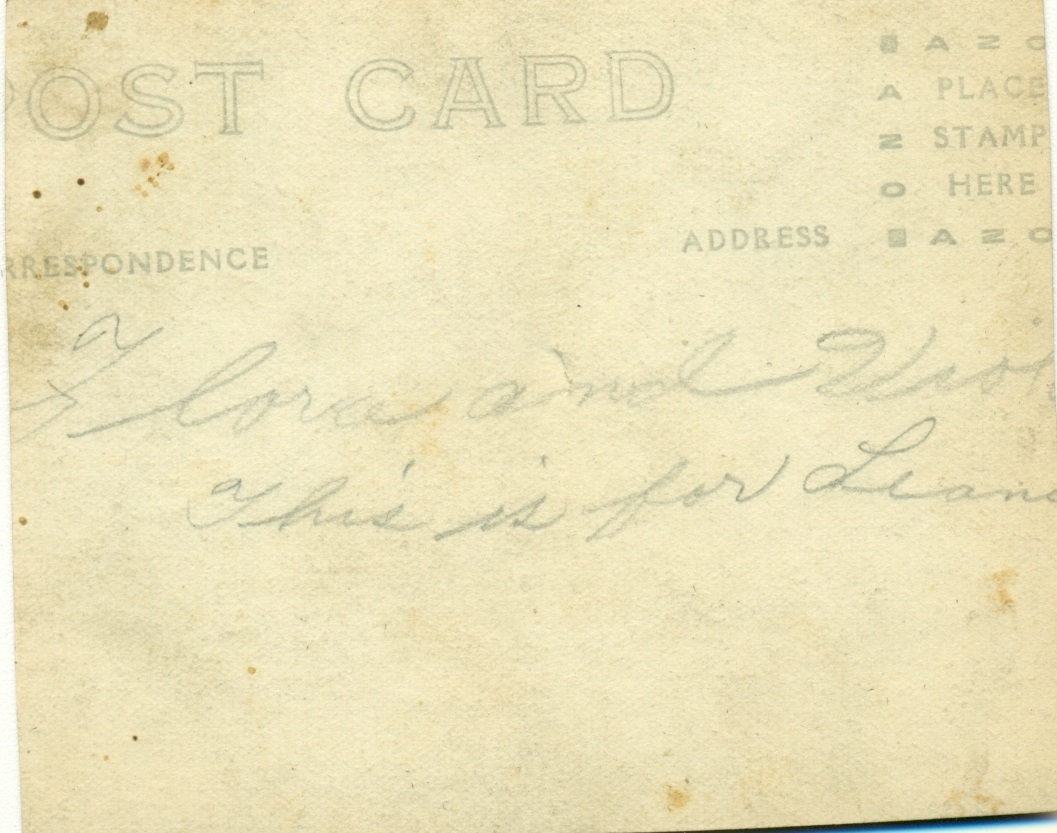 OST CARD
AZO
A PLACE
Z STAMP
O HERE
RRESPONDENCE ADDRESS AZO
Flora and Viol
This is for Leano